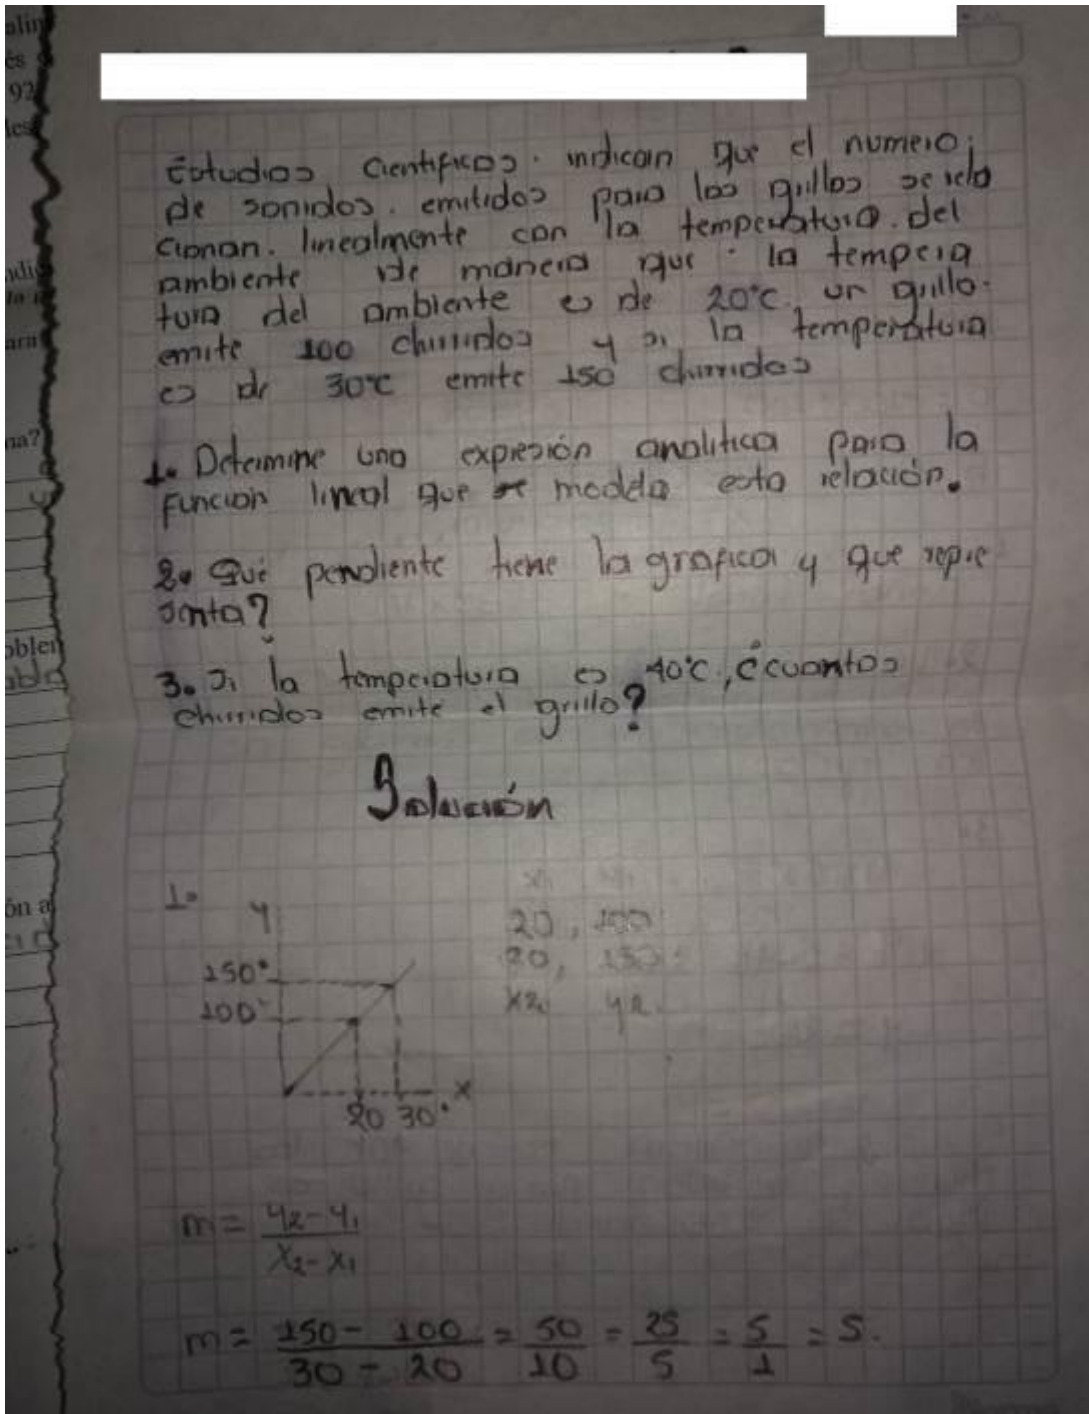 alin
és
92
les
Estudios Cientificos. indican que el numero
de sonidos. emitidos para los grillos se rela
cionan. linealmente con la temperatura. del
ambiente de manera que la tempera
tura del ambiente es de 20°C. un grillo.
emite 100 chirridos y si la temperatura
es de 30°C emite 150 chirridos
ara
na?
1. Determine una expresión analitica para la
funcion lineal que modela esta relación.
2. Qué pendiente tiene la grafica y que repre
senta?
oblem
3. Si la temperatura es 40°C, ¿cuantos
chirridos emite el grillo?
Solución
ón a
1.
y
150°
100°
20 30° x
x1 y1
20, 100
20, 150
x2 y2
m = y2 - y1
x2 - x1
m = 150 - 100 = 50 = 25 = 5 = 5.
30 - 20 10 5 1